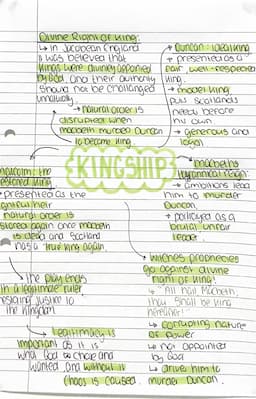 Divine Right of Kings:
↳ in Jacobean England
it was believed that
kings were divinely appointed
by God and their authority
should not be challenged
unlawfully.
↳ natural order is
disrupted when
macbeth murders Duncan
to become king.
Duncan: ideal king
↳ presented as a
fair, well-respected
king.
↳ model king
puts Scotlands
needs before
his own
↳ generous and
loyal
KINGSHIP
malcolm: the
restored king
presented as the
rightful heir
natural order is
stored again once macbeth
is dead and Scotland
has a true king again.
↳ the play ends
in a legitimate ruler
restoring justice to
the kingdom.
↳ Legitimacy is
important as it is
who God chose and
wanted and without is
chaos is caused.
macbeths
tyrannical reign
↳ ambitions lead
him to murder
Duncan.
↳ portrayed as a
brutal, unfair
leader.
witches prophecies
go against divine
right of kings:
↳ "All hail, macbeth,
thou shalt be king
hereafter!"
↳ corrupting nature
of power
↳ not appointed
by God
↳ drive him to
murder Duncan.